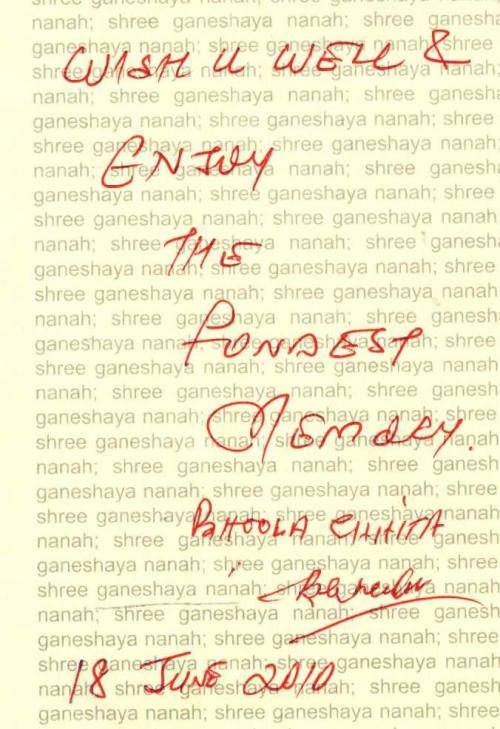 WISH U WELL &
ENJOY
THE
FONDEST
MEMORY.
BHOOLA CHHITA
18 JUNE 2010
nanah; shree ganeshaya nanah; shree ganesh
ganeshaya nanah; shree ganeshaya nanah; shree
shree ganeshaya nanah; shree ganeshaya nanah;
nanah; shree ganeshaya nanah; shree ganesha
ganeshaya nanah; shree ganeshaya nanah; shree
shree ganeshaya nanah; shree ganeshaya nanah
nanah; shree ganeshaya nanah; shree ganesha
ganeshaya nanah; shree ganeshaya nanah; shree
shree ganeshaya nanah; shree ganeshaya nanah
nanah; shree ganeshaya nanah; shree ganesha
ganeshaya nanah; shree ganeshaya nanah; shree
shree ganeshaya nanah; shree ganeshaya nanah
nanah; shree ganeshaya nanah; shree ganesha
ganeshaya nanah; shree ganeshaya nanah; shree
shree ganeshaya nanah; shree ganeshaya nanah
nanah; shree ganeshaya nanah; shree ganesh
ganeshaya nanah; shree ganeshaya nanah; shree
shree ganeshaya nanah; shree ganeshaya nanah
nanah; shree ganeshaya nanah; shree ganesh
ganeshaya nanah; shree ganeshaya nanah; shree
shree ganeshaya nanah; shree ganeshaya nanah
nanah; shree ganeshaya nanah; shree ganesh
ganeshaya nanah; shree ganeshaya nanah; shree
shree ganeshaya nanah; shree ganeshaya nanah
nanah; shree ganeshaya nanah; shree ganesh
ganeshaya nanah; shree ganeshaya nanah; shree
shree ganeshaya nanah; shree ganeshaya nanah
nanah; shree ganeshaya nanah; shree ganesh
ganeshaya nanah; shree ganeshaya nanah; shree